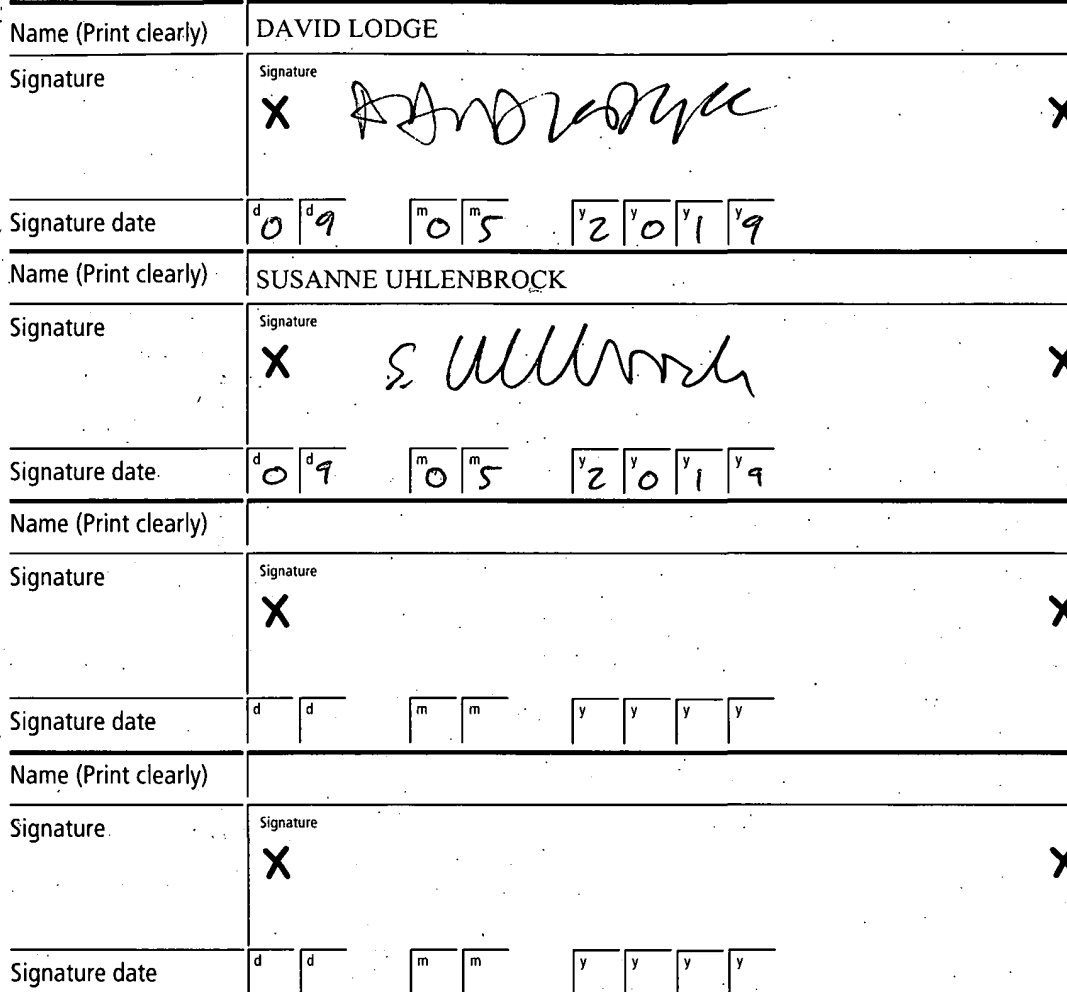 Name (Print clearly) DAVID LODGE
Signature Signature
X X
Signature date d0 d9 m0 m5 y2 y0 y1 y9
Name (Print clearly) SUSANNE UHLENBROCK
Signature Signature
X S. Uhlenbrock X
Signature date d0 d9 m0 m5 y2 y0 y1 y9
Name (Print clearly)
Signature Signature
X X
Signature date d d m m y y y y
Name (Print clearly)
Signature Signature
X X
Signature date d d m m y y y y